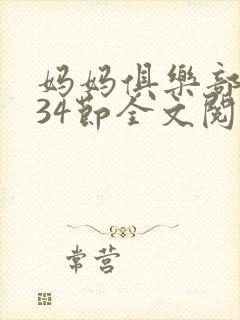 妈妈俱樂部
34節全文閱
常营